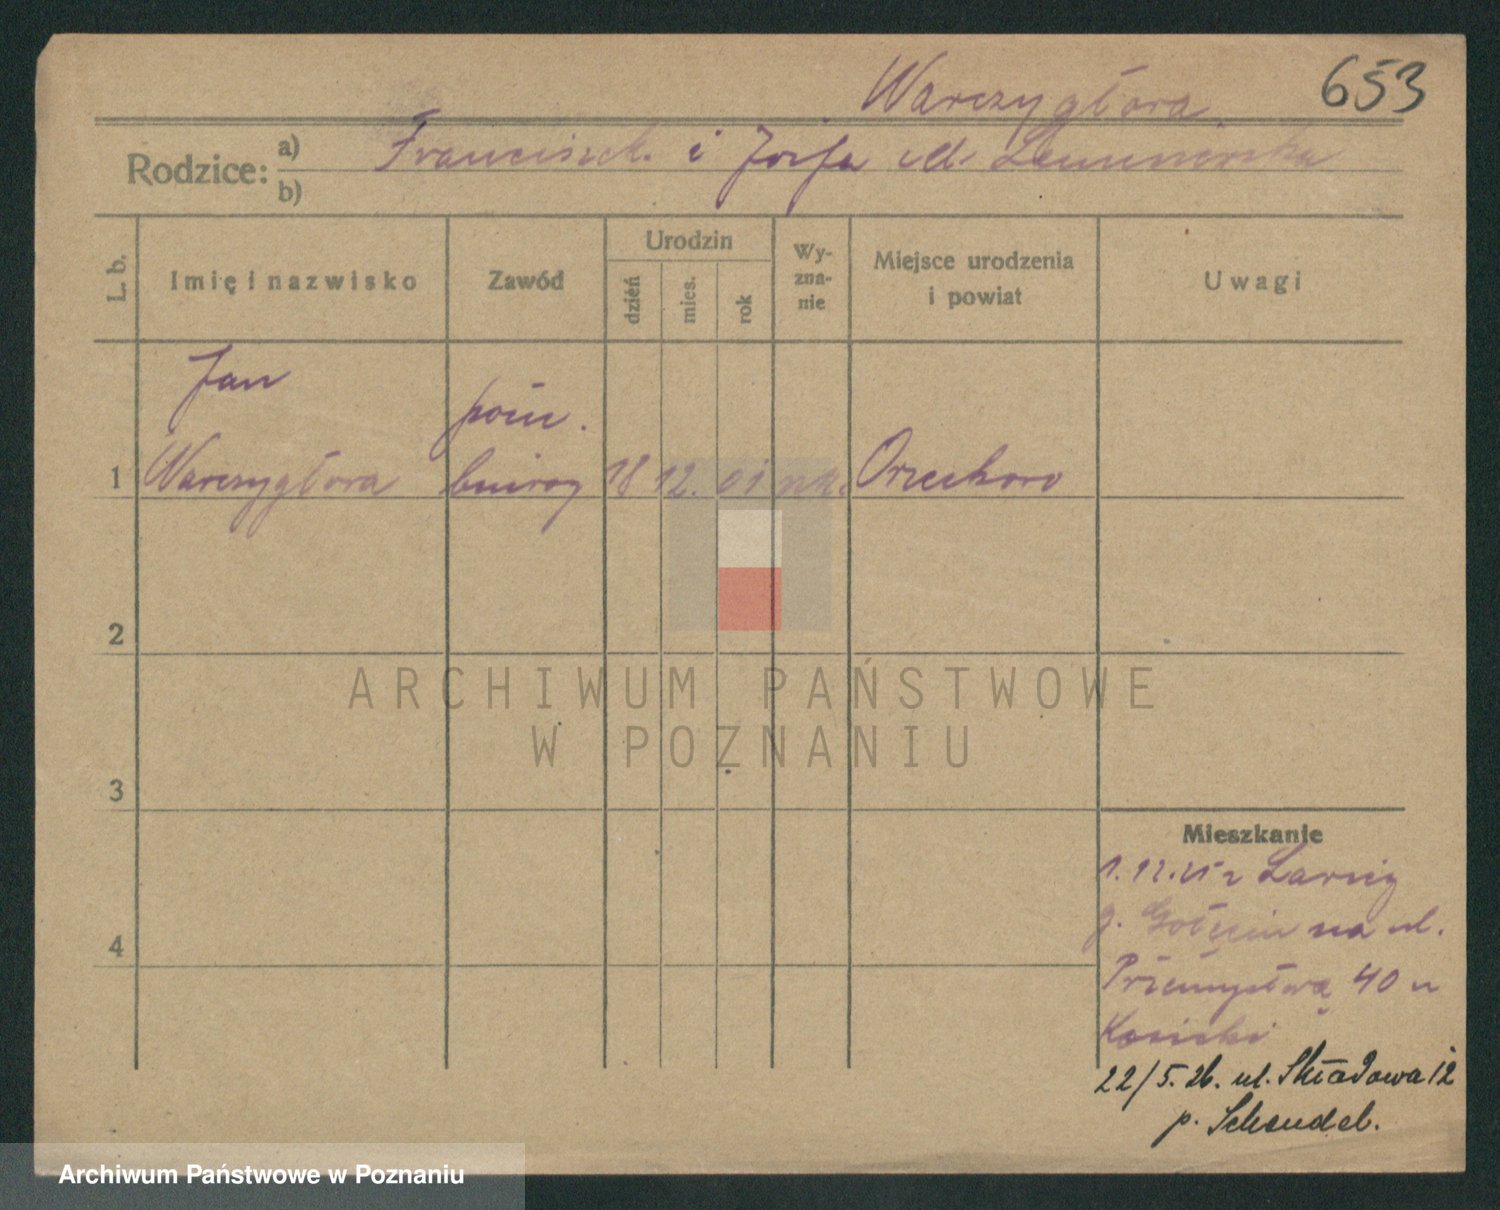 653
Warczygłowa
Rodzice: a) Franciszek i Zofja
b)
L. b.
Imię i nazwisko
Zawód
Urodzin
dzień
mies.
rok
Wy-
zna-
nie
Miejsce urodzenia
i powiat
Uwagi
Jan
pom.
1 Warczygłowa 18 12. 01 Orzechowo
2
3
4
Mieszkanie
g. Gołęcin na ul.
Przemysłową 40 u
Kosicki
22/5.26. ul. Składowa 12
p. Schendel.
ARCHIWUM PAŃSTWOWE
W POZNANIU
Archiwum Państwowe w Poznaniu